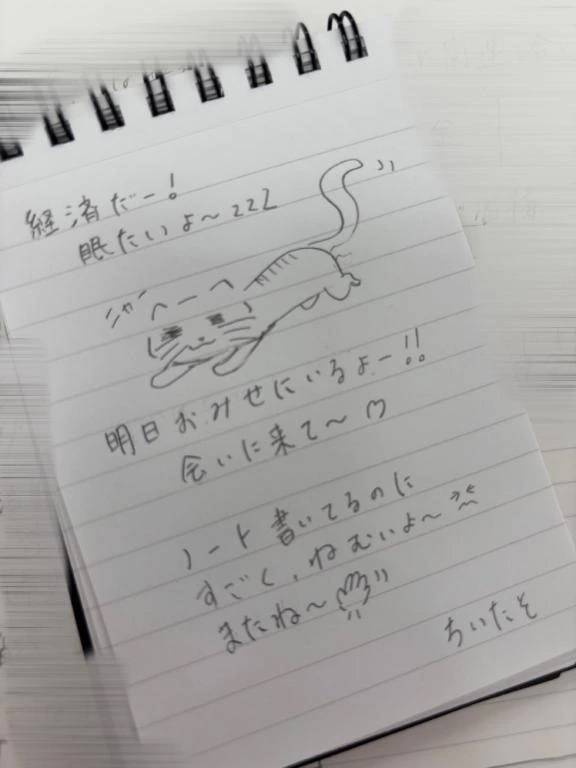 経済だー!
眠たいよ〜zzZ
明日おみせにいるよー!!
会いに来て〜♡
ノート書いてるのに
すごく、ねむいよ〜
またね〜
ちいたそ